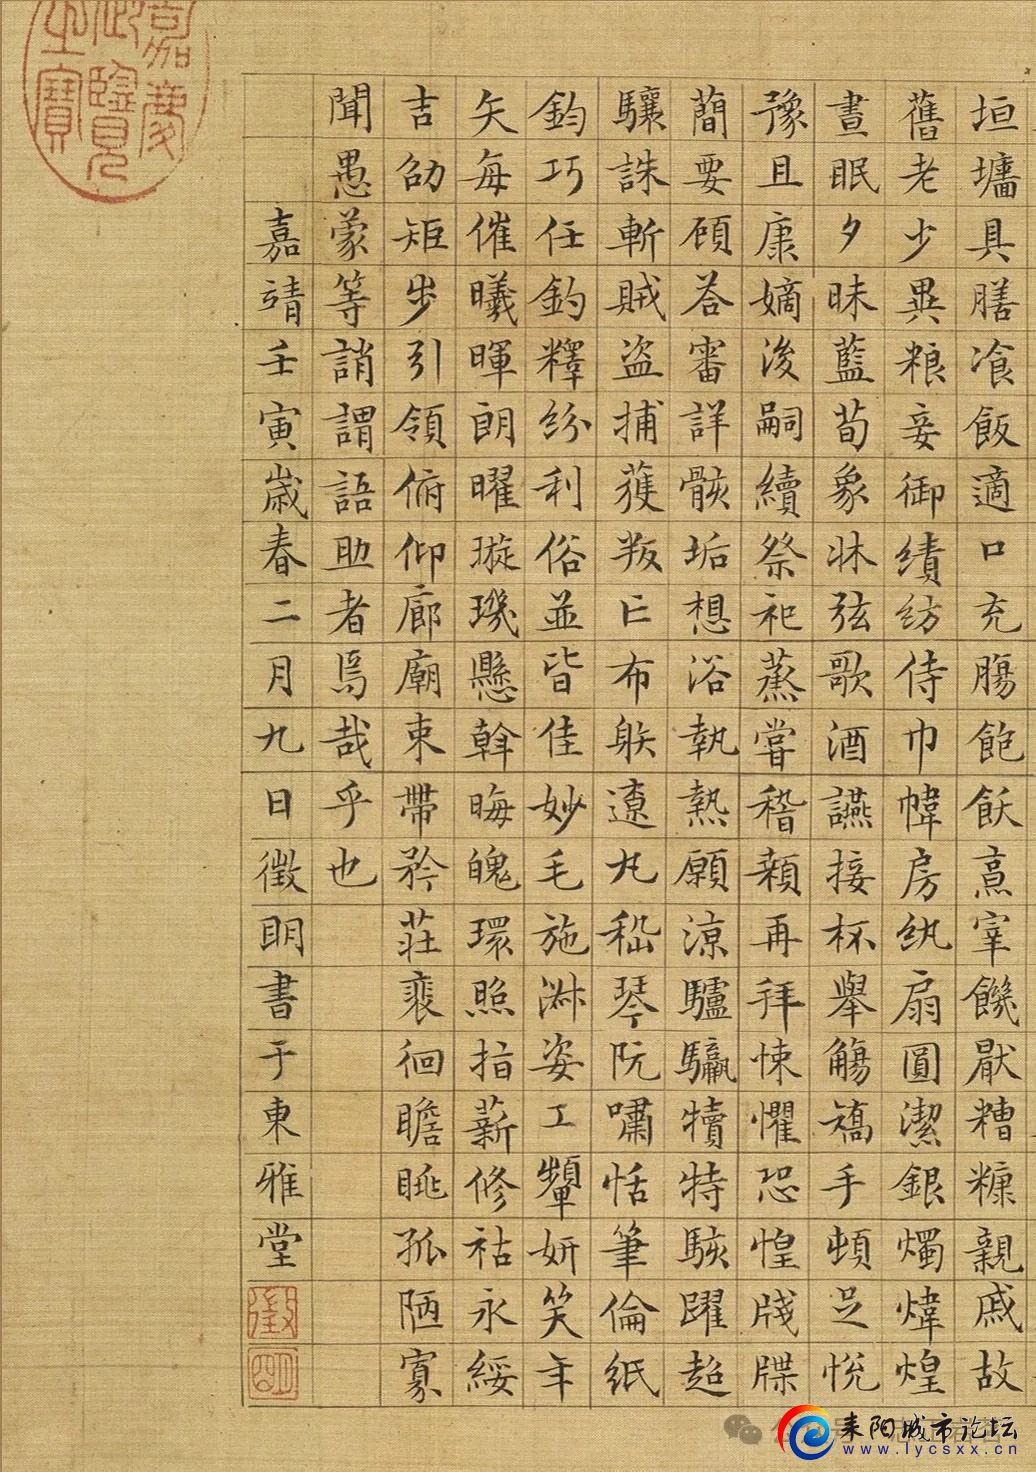 垣墻具膳飡飯適口充膓飽飫烹宰饑厭糟糠親戚故
舊老少異粮妾御績紡侍巾幃房紈扇圓潔銀燭煒煌
晝眠夕昧藍荀象牀弦歌酒讌接杯舉觴矯手頓足悅
豫且康嫡後嗣續祭祀蒸嘗稽顙再拜悚懼恐惶牋牒
簡要顧荅審詳骸垢想浴執熱願凉驢騾犢特駭躍超
驤誅斬賊盜捕獲叛亡布躲遼丸嵇琴阮嘯恬筆倫紙
鈞巧任釣釋紛利俗並皆佳妙毛施淑姿工顰妍笑年
矢每催曦暉朗曜璇璣懸斡晦魄環照指薪修祜永綏
吉劭矩步引領俯仰廊廟束帶矜莊裵徊瞻眺孤陋寡
聞愚蒙等誚謂語助者焉哉乎也
嘉靖壬寅歲春二月九日徵明書于東雅堂
嘉慶御覽之寶
耒阳城市论坛
www.lycsxx.cn